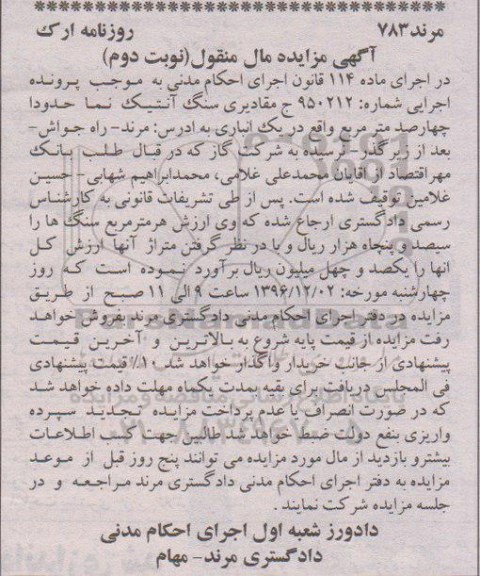 مرند۷۸۳ روزنامه ارک
آگهی مزایده مال منقول(نوبت دوم)
در اجرای ماده ۱۱۴ قانون اجرای احکام مدنی به موجب پرونده
اجرایی شماره: ۹۵۰۲۱۲ ج مقادیری سنگ آنتیک نما حدودا
چهارصد متر مربع واقع در یک انباری به ادرس: مرند- راه جواش-
بعد از زیر گذر- نرسیده به شرکت گاز که در قبال طلب بانک
مهراقتصاد از اقایان محمدعلی غلامی، محمدابراهیم شهابی- حسین
غلامین توقیف شده است. پس از طی تشریفات قانونی به کارشناس
رسمی دادگستری ارجاع شده که وی ارزش هرمترمربع سنگ ها را
سیصد و پنجاه هزار ریال و با در نظر گرفتن متراژ آنها ارزش کل
انها را یکصد و چهل میلیون ریال برآورد نموده است که روز
چهارشنبه مورخه: ۱۳۹۶/۱۲/۰۲ ساعت ۹ الی ۱۱ صبح از طریق
مزایده در دفتر اجرای احکام مدنی دادگستری مرند بفروش خواهد
رفت مزایده از قیمت پایه شروع به بالاترین و آخرین قیمت
پیشنهادی از جانب خریدار واگذار خواهد شد، ۱۰٪ قیمت پیشنهادی
فی المجلس دریافت برای بقیه بمدت یکماه مهلت داده خواهد شد
که در صورت انصراف یا عدم پرداخت مزایده تجدید سپرده
واریزی بنفع دولت ضبط خواهد شد طالبین جهت کسب اطلاعات
بیشترو بازدید از مال مورد مزایده می توانند پنج روز قبل از موعد
مزایده به دفتر اجرای احکام مدنی دادگستری مرند مراجعه و در
جلسه مزایده شرکت نمایند .
دادورز شعبه اول اجرای احکام مدنی
دادگستری مرند- مهام
ParsNamadData
پایگاه اطلاع رسانی مناقصه و مزایده